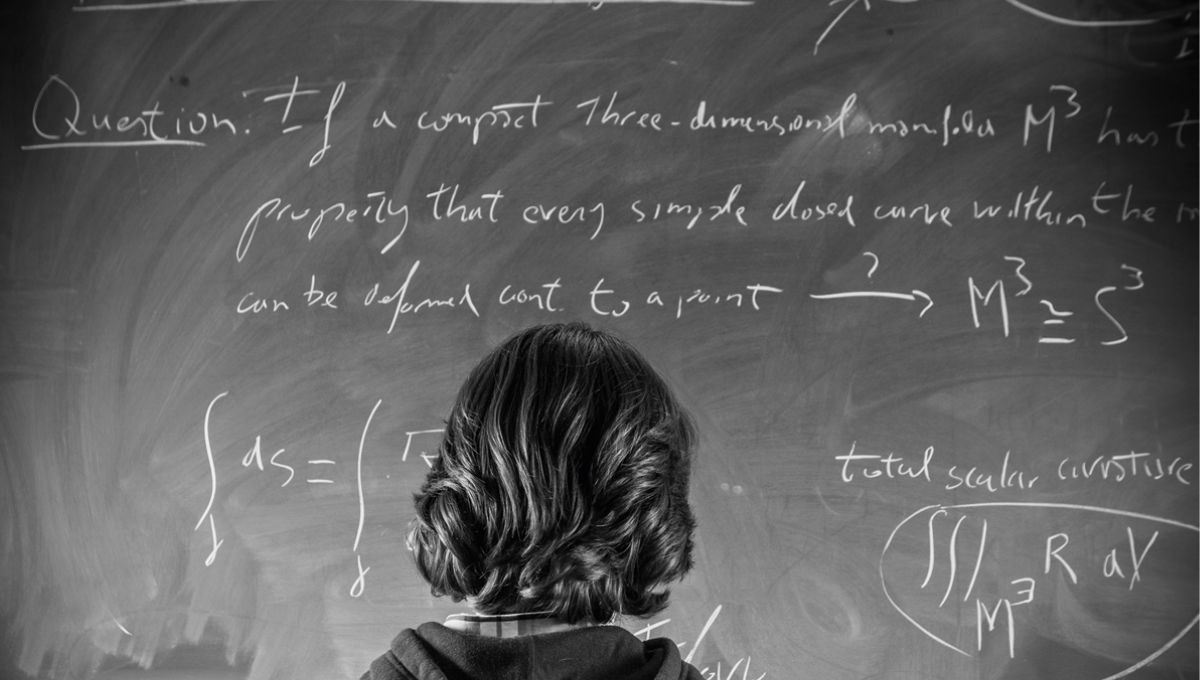 Question: If a compact three-dimensional manifold M³ has t
property that every simple closed curve within the m
can be deformed cont. to a point ⟶? M³ ≅ S³
∫ ds = ∫
total scalar curvature
∭ M³ R dV